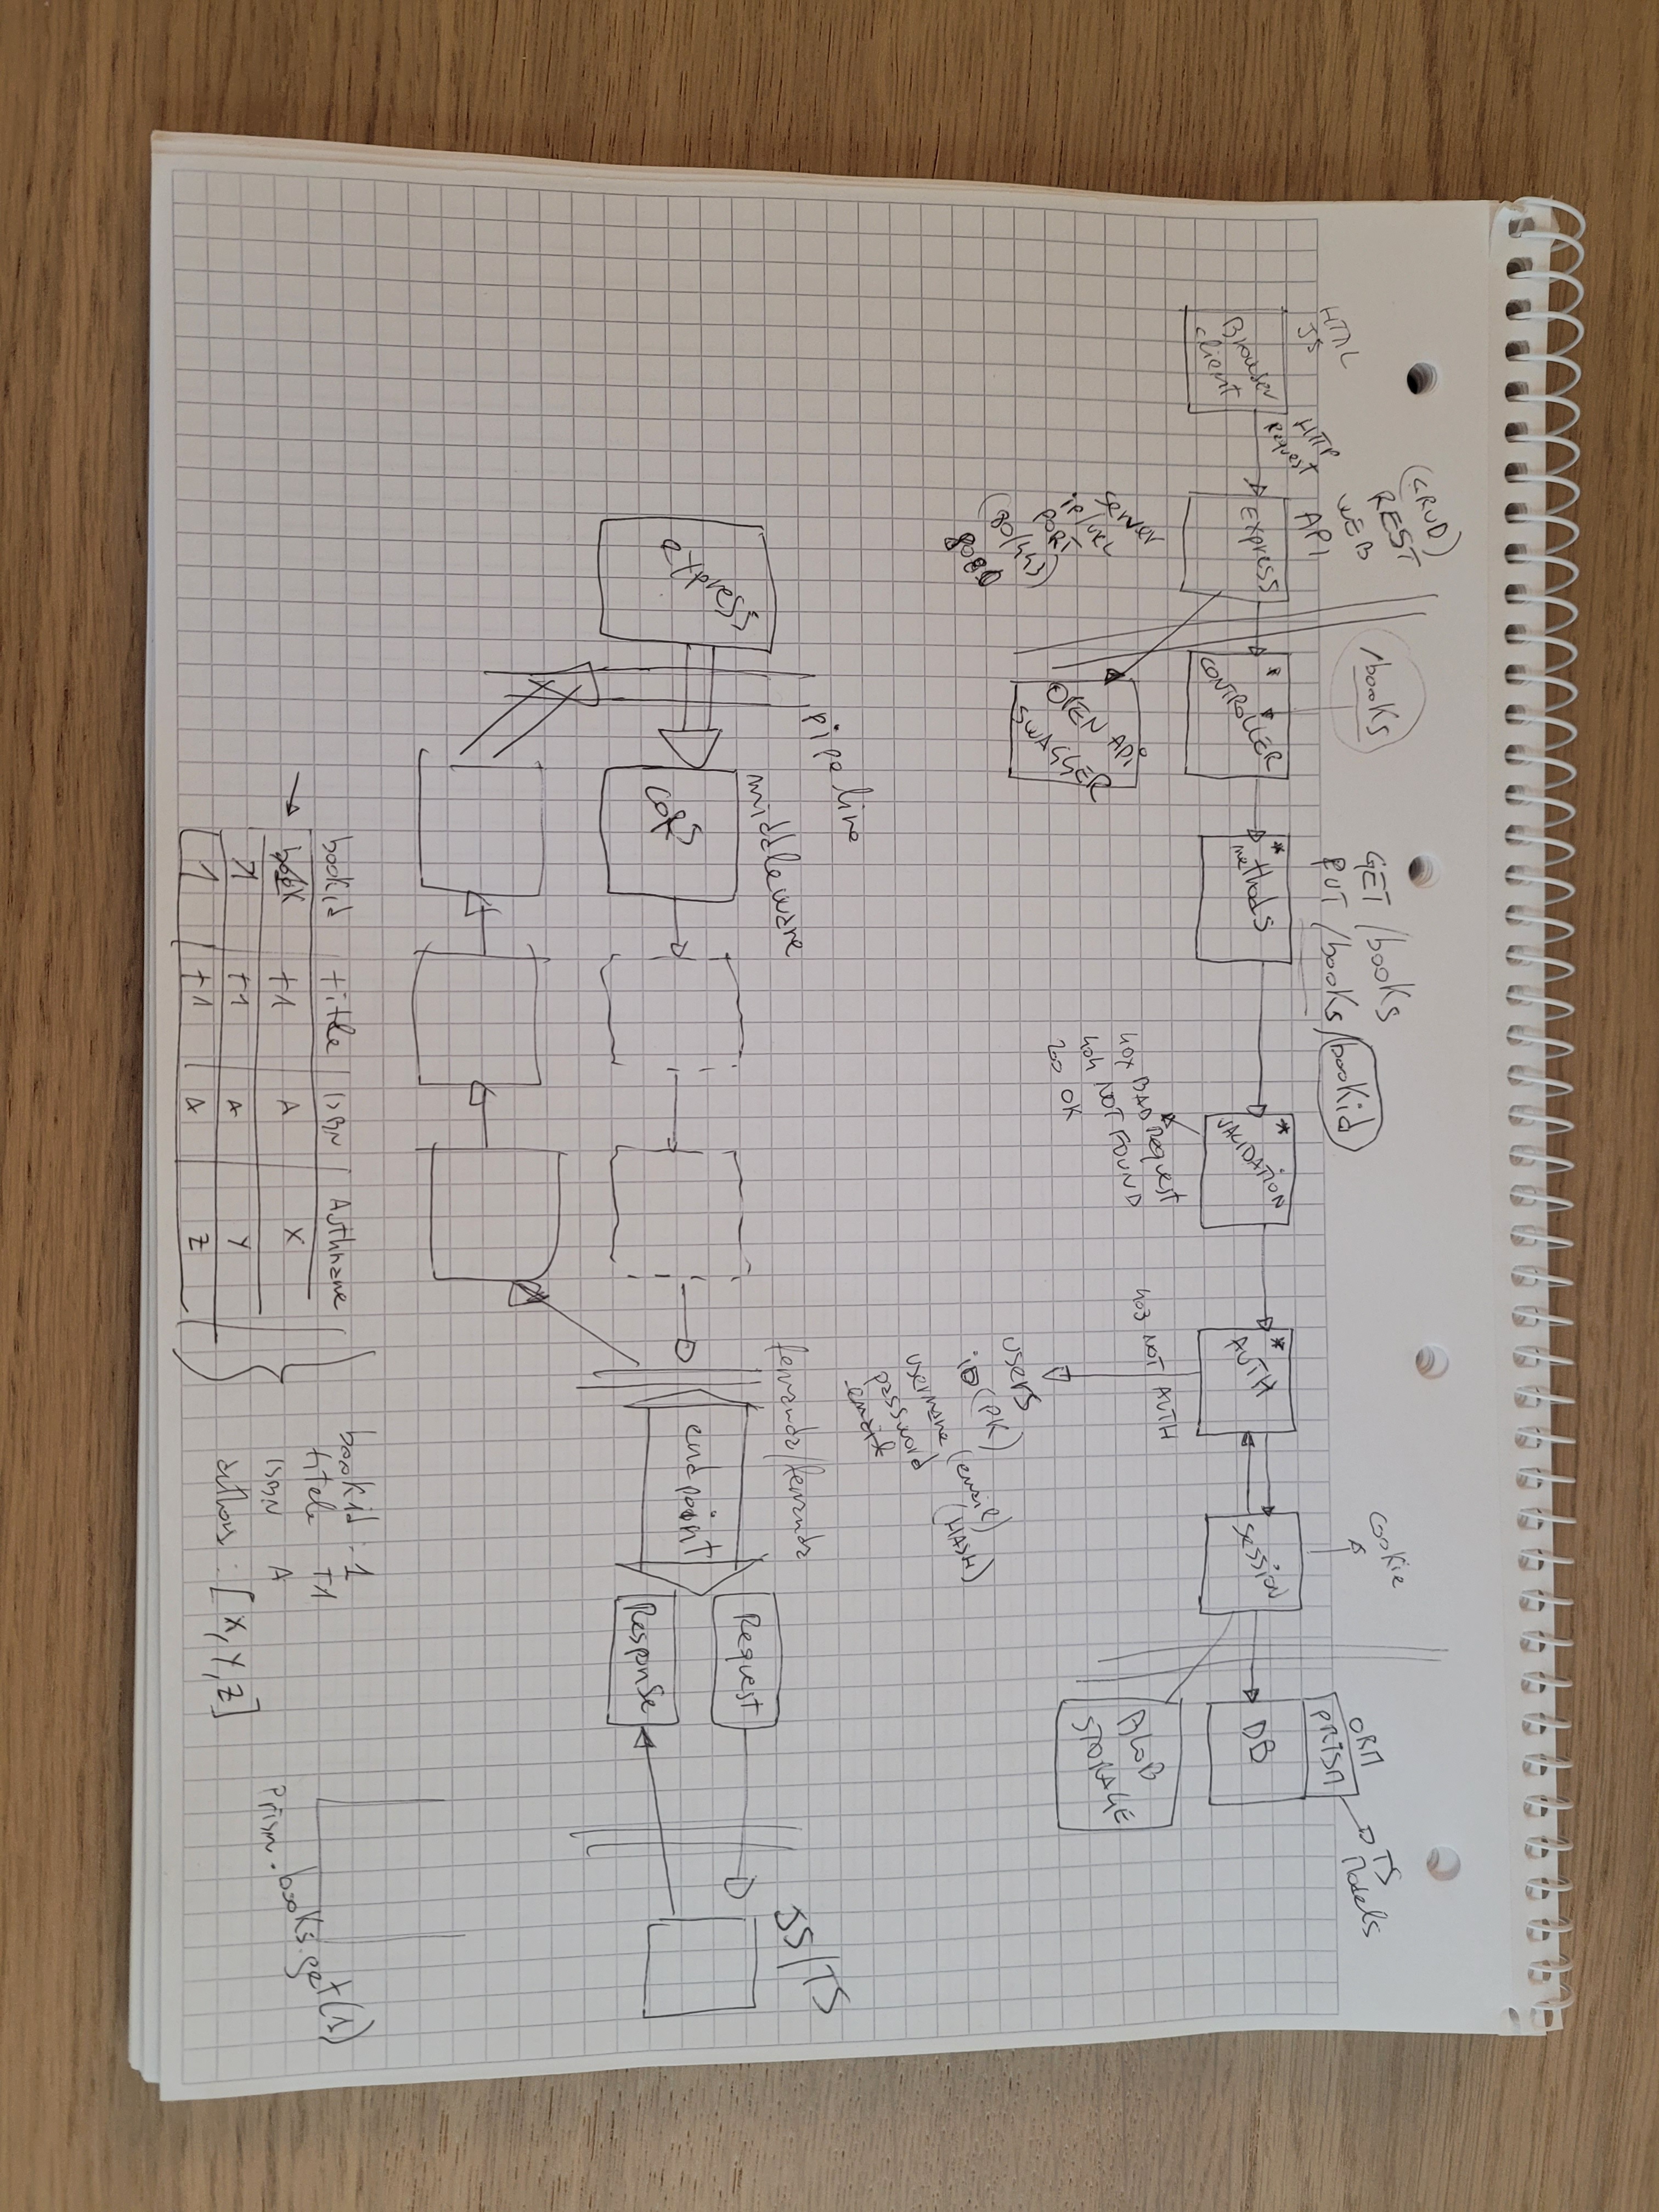 (CRUD)
REST
WEB
API
HTML
JS
HTTP
Request
Browser
client
express
server
ip/URL
PORT
(80/443)
8080
/books
*
CONTROLLER
OPEN API
SWAGGER
GET /books
PUT /books/bookid
*
methods
*
VALIDATION
40x BAD Request
404 NOT FOUND
200 OK
*
AUTH
403 NOT AUTH
users
iD (PK)
username (email)
password (HASH)
email
cookie
session
ORM
PRISM
TS
Models
DB
BLOB
STORAGE
pipeline
middleware
express
CORS
fernanda/fernanda
endpoint
Request
Response
JS/TS
bookid title ISBN Authname
t1 A X
1 t1 A Y
1 t1 A Z
bookid : 1
titele T1
ISBN A
authors : [X, Y, Z]
Prism.books.get(1)